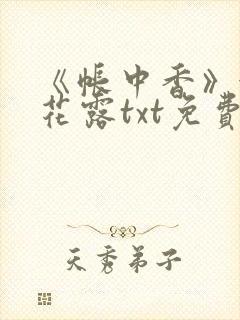 《帳中香》
花露txt免費
天秀弟子